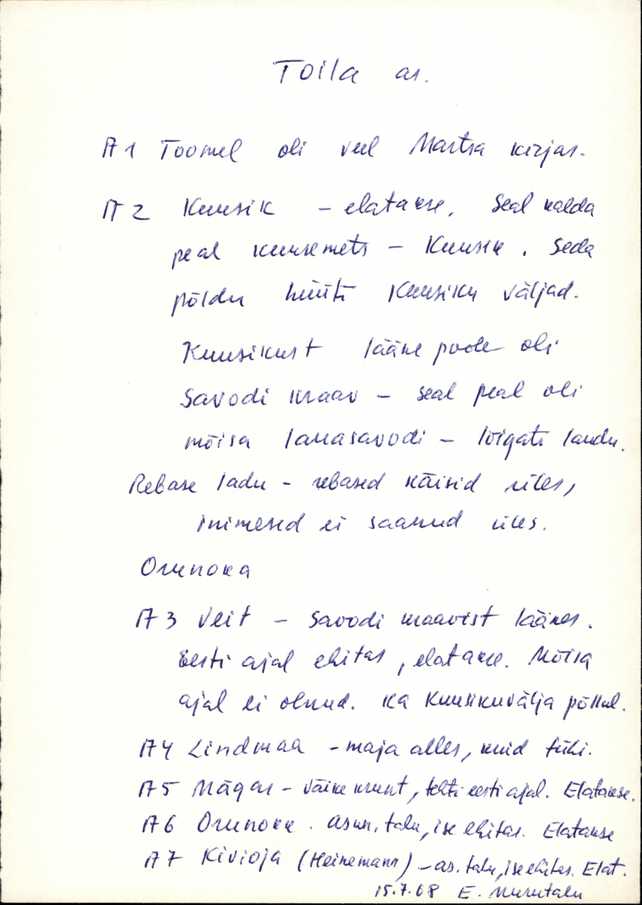 Toila as.
A1 Toomel oli veel Martsa kirjas.
A2 Kuusik – elatakse. Seal kalda
peal kuusemets – Kuusik. Seda
põldu hüüti Kuusiku väljad.
Kuusikust lääne poole oli
Savodi kraav – seal peal oli
mõisa lauasavodi – lõigati laudu.
Rebase ladu – rebased käisid üles,
inimesed ei saanud üles.
Orunoka
A3 Veit – Savodi kraavist läänes.
Eesti ajal ehitas, elatakse. Mõisa
ajal ei olnud. Ka Kuusikuvälja põllul.
A4 Lindmaa – maja alles, kuid tühi.
A5 Mägar – väike krunt, tehti eesti ajal. Elatakse.
A6 Orunoka. asun. talu, ise ehitas. Elatakse
A7 Kivioja (Heinemann) – as. talu, ise ehitas. Elat.
15.7.68 E.